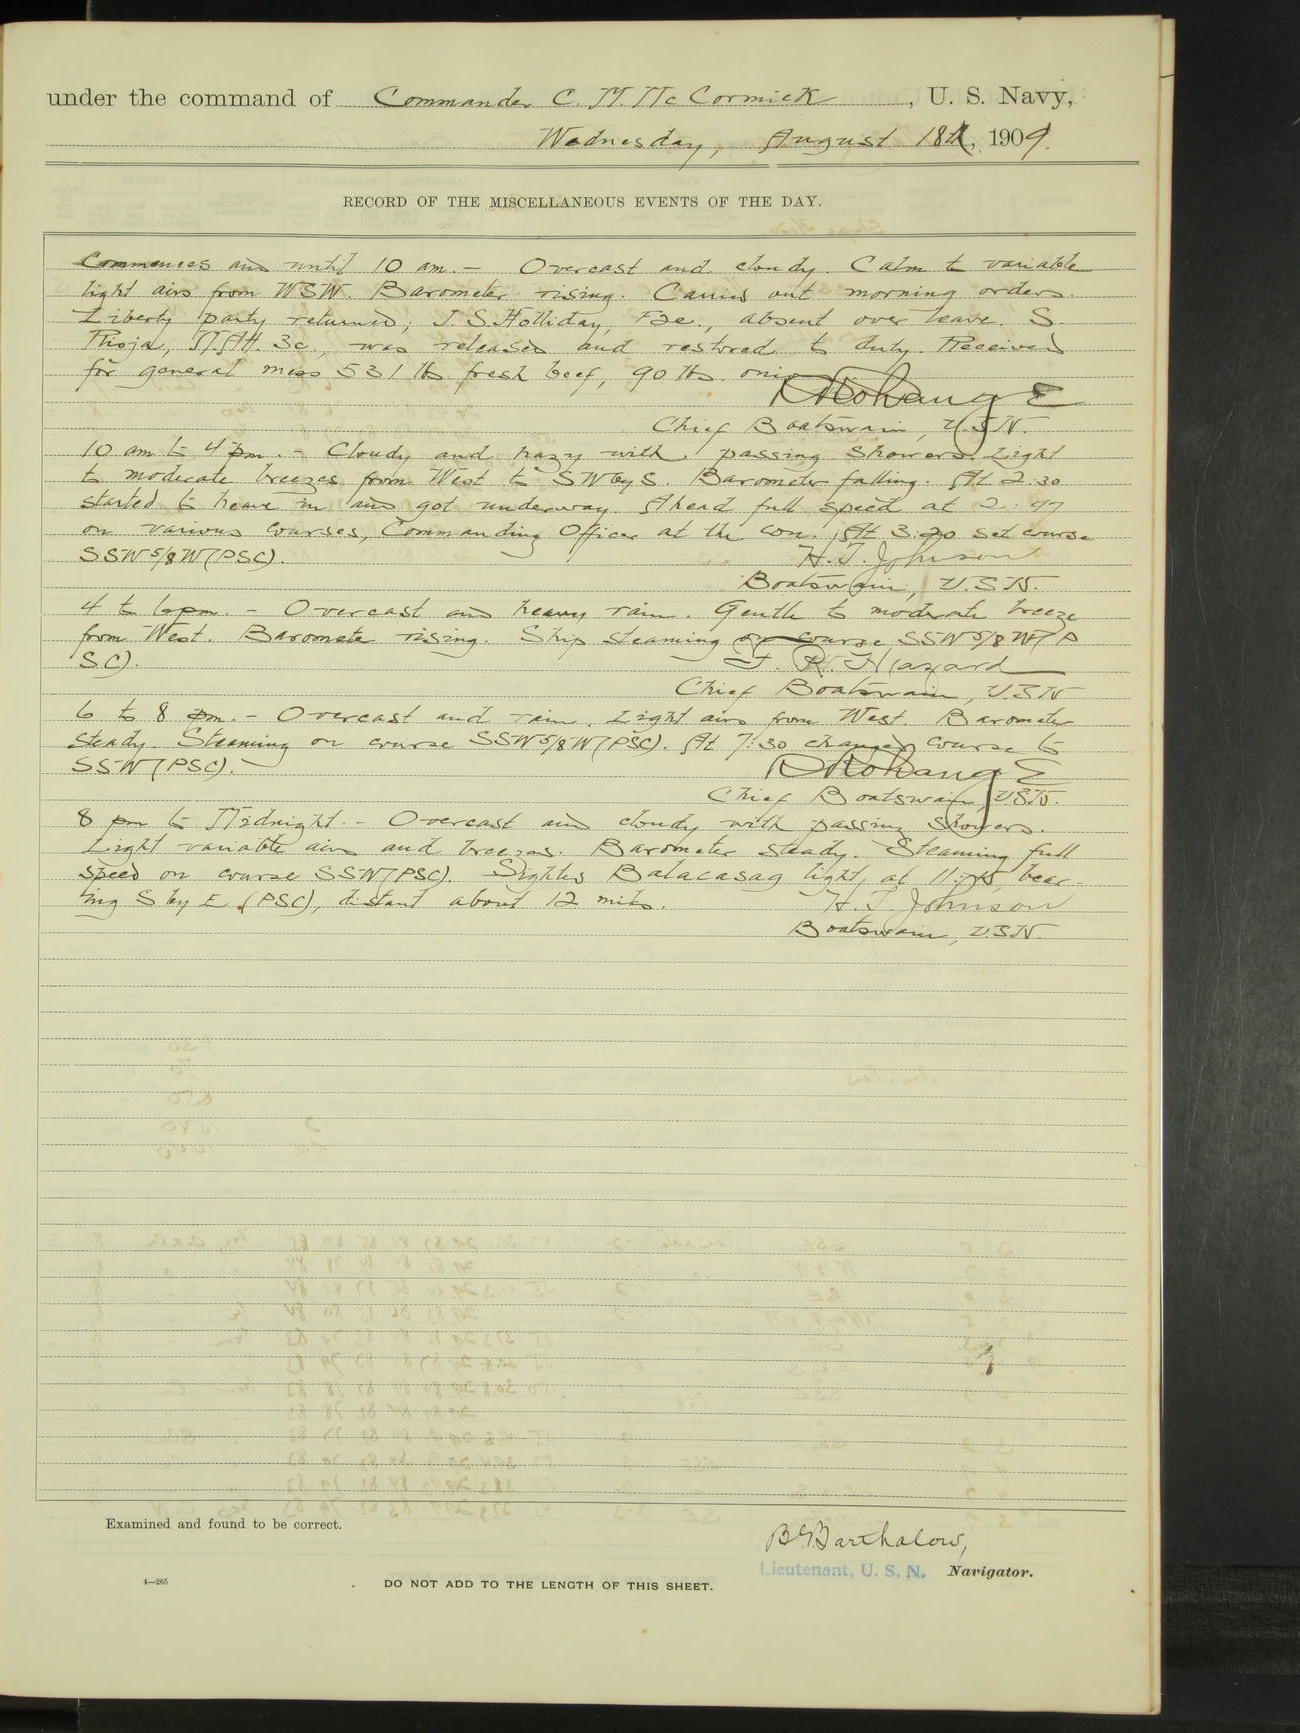 under the command of Commander C. M. McCormick, U. S. Navy,
Wednesday, August 18th, 1909.
RECORD OF THE MISCELLANEOUS EVENTS OF THE DAY.
Commences and until 10 am. - Overcast and cloudy. Calm to variable
light airs from WSW. Barometer rising. Carried out morning orders.
Liberty party returned; J. S. Holliday, F2c., absent over leave. S.
M.Att. 3c., was released and restored to duty. Received
for general mess 531 lbs fresh beef, 90 lbs. onions.
Chief Boatswain, U.S.N.
10 am to 4 pm. - Cloudy and hazy with passing showers. Light
to moderate breezes from West to SWbyS. Barometer falling. At 2:30
started to heave in and got underway. Ahead full speed at 2:47
on various courses, Commanding Officer at the con. At 3:20 set course
SSW 5/8 W (PSC). H. T. Johnson
Boatswain, U.S.N.
4 to 6 pm. - Overcast and heavy rain. Gentle to moderate breeze
from West. Barometer rising. Ship steaming on course SSW 5/8 W (P
SC). F. R. Hazard
Chief Boatswain, U.S.N
6 to 8 pm. - Overcast and rain. Light airs from West. Barometer
steady. Steaming on course SSW 5/8 W (PSC). At 7:30 changed course to
SSW (PSC).
Chief Boatswain, USN.
8 pm to Midnight. - Overcast and cloudy with passing showers.
Light variable airs and breezes. Barometer steady. Steaming full
speed on course SSW (PSC). Sighted Balacasag light, at bear-
ing S by E (PSC), distant about 12 miles. H. T. Johnson
Boatswain, U.S.N.
Examined and found to be correct.
B G Barthalow,
Lieutenant, U. S. N. Navigator.
4—265
DO NOT ADD TO THE LENGTH OF THIS SHEET.